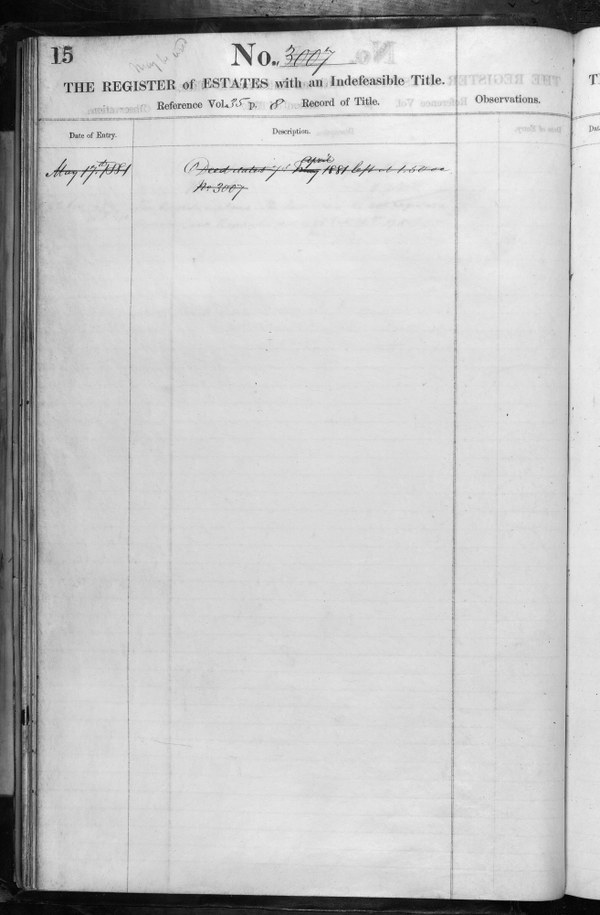 15
No. 3007
THE REGISTER of ESTATES with an Indefeasible Title.
Reference Vol. 35 p. 8 Record of Title.
Observations.
Date of Entry.
Description.
April
May 17th 1881
Deed dated May 1881 left at 1.50
No 3007